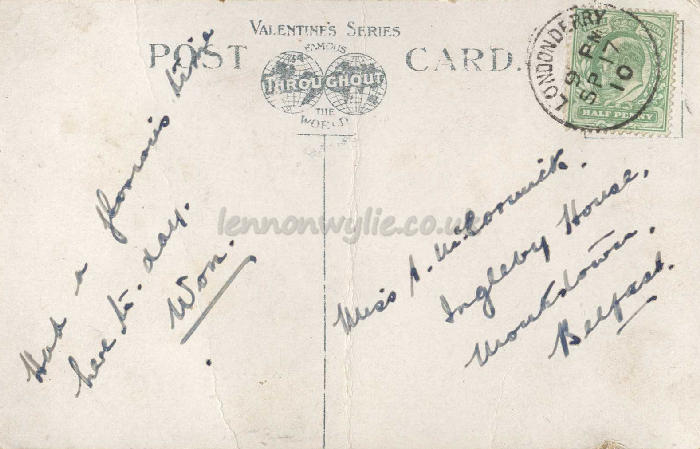 VALENTINE'S SERIES
POST CARD.
FAMOUS
THROUGHOUT
THE
WORLD
LONDONDERRY
9 PM
SP 17
10
HALF PENNY
Had a glorious time
here to. day.
Won.
Miss S. McCormick.
Ingleby House,
Monkstown,
Belfast.
lennonwylie.co.uk